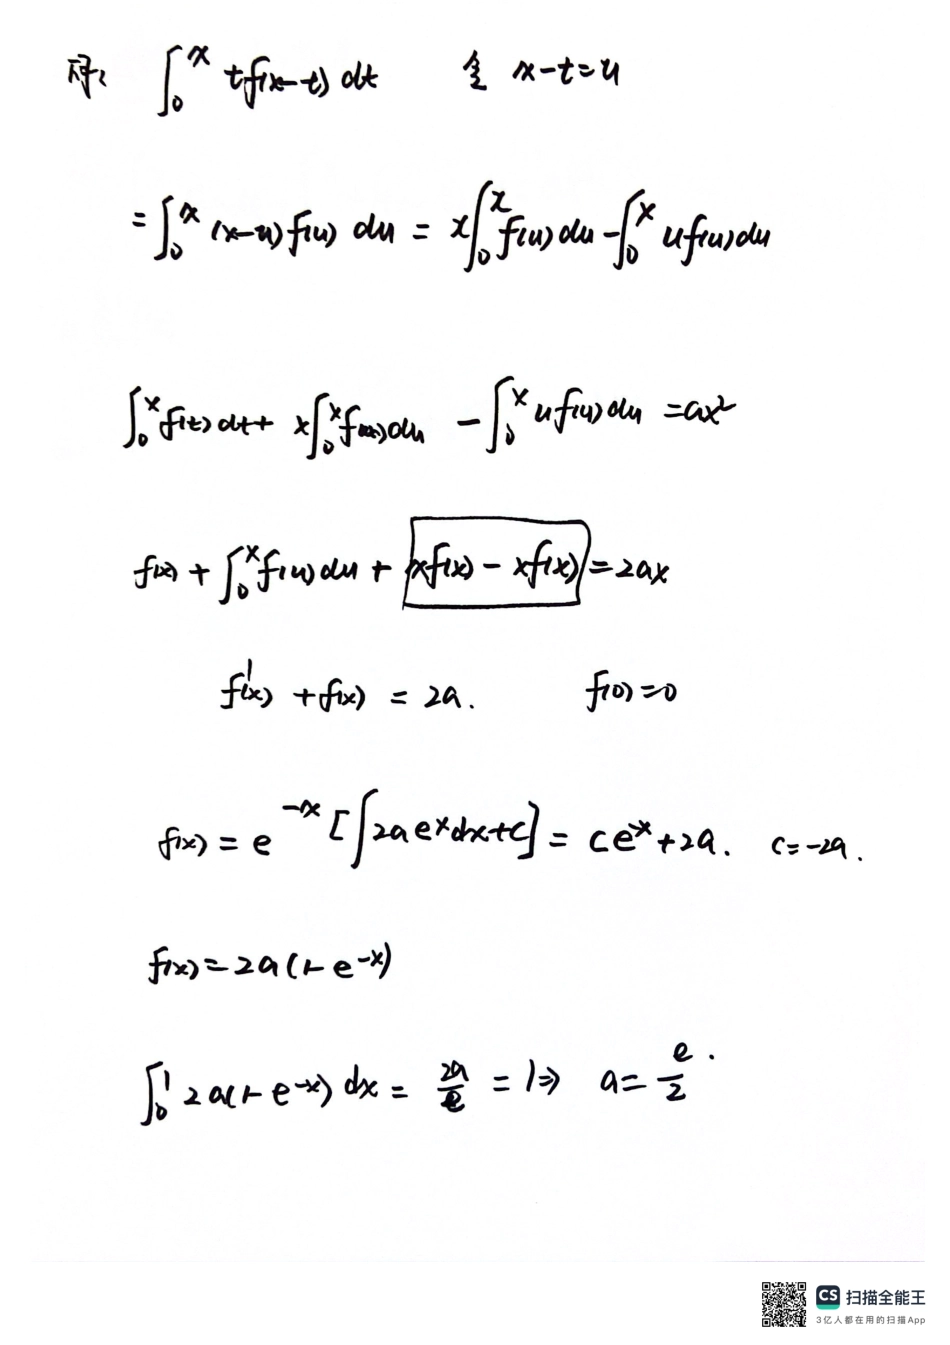 解: ∫₀ˣ t f(x-t) dt 令 x-t=u
= ∫₀ˣ (x-u) f(u) du = x∫₀ˣ f(u) du - ∫₀ˣ u f(u) du
∫₀ˣ f(t) dt + x∫₀ˣ f(u) du - ∫₀ˣ u f(u) du = ax²
f(x) + ∫₀ˣ f(u) du + xf(x) - xf(x) = 2ax
f'(x) + f(x) = 2a. f(0)=0
f(x) = e⁻ˣ [∫2a eˣ dx + c] = ce⁻ˣ + 2a. c=-2a.
f(x) = 2a(1-e⁻ˣ)
∫₀¹ 2a(1-e⁻ˣ) dx = 2a/e = 1 ⇒ a = e/2.
CS 扫描全能王
3亿人都在用的扫描App